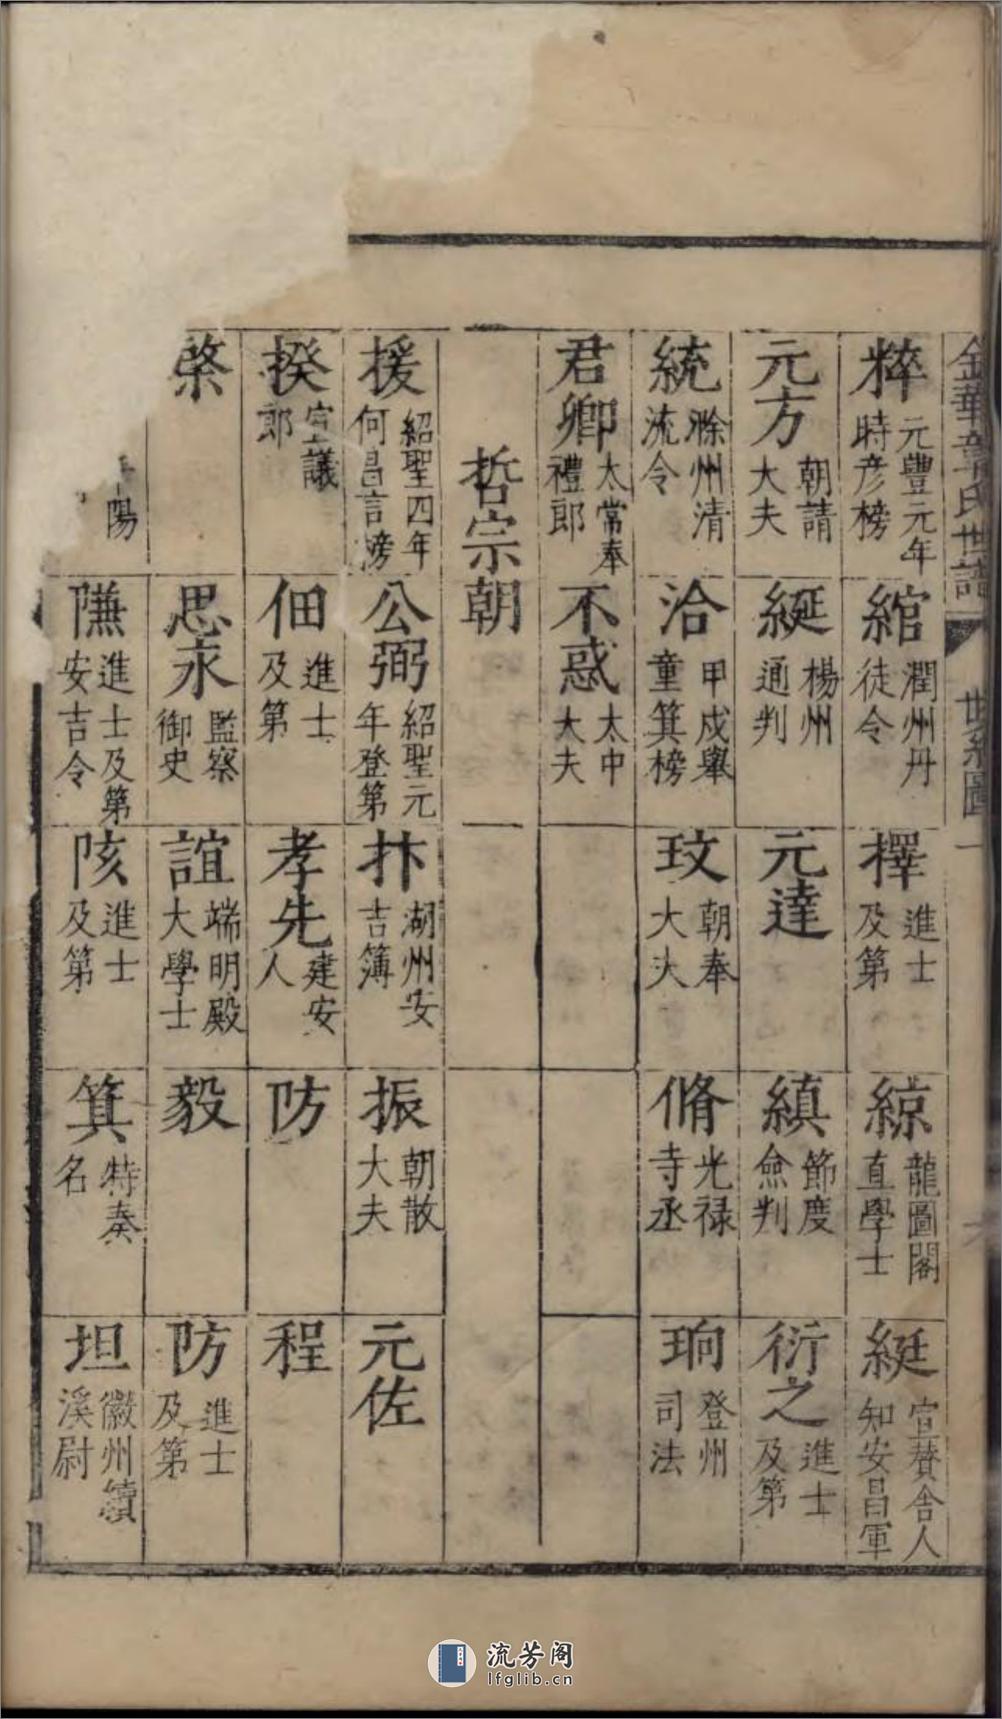 金華章氏世譜 世系圖 一
粹 元豐元年時彥榜
綰 潤州丹徒令
擇 進士及第
綜 龍圖閣直學士
綎 宣贊舍人知安昌軍
元方 朝請大夫
綖 楊州通判
元達
縝 節度僉判
衍之 進士及第
統 滁州清流令
洽 甲戍舉童箕榜
玟 朝奉大夫
脩 光禄寺丞
珦 登州司法
君卿 太常奉禮郎
不惑 太中大夫
哲宗朝
援 紹聖四年何昌言榜
公弼 紹聖元年登第
抃 湖州安吉簿
振 朝散大夫
元佐
揆 宣議郎
佃 進士及第
孝先 建安人
防
程
棨
思永 監察御史
誼 端明殿大學士
毅
防 進士及第
陽
隒 進士及第安吉令
陔 進士及第
箕 特奏名
坦 徽州績溪尉
流芳阁
lfglib.cn